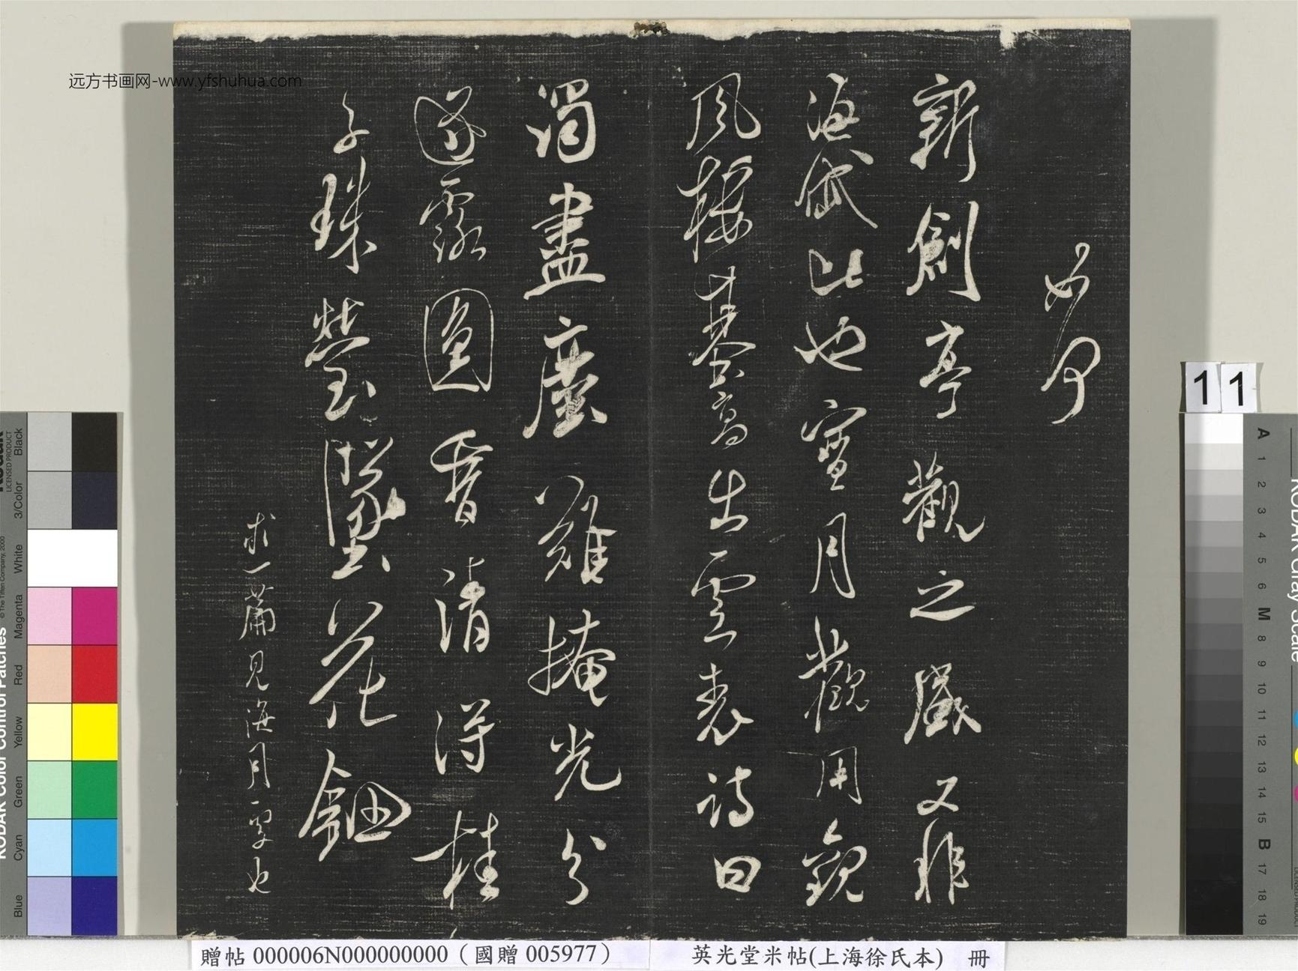 如何
新創亭觀之盛又非
海岱比也寶月觀用觀
風樓基高出雲表詩曰
濁盡塵難掩光分
遥露圓香清浮桂
子珠瑩墜花鈿
求一篇見海月一字也
远方书画网-www.yfshuhua.com
贈帖 000006N000000000（國贈 005977）
英光堂米帖(上海徐氏本) 冊
11
KODAK Color Control Patches
Blue Cyan Green Yellow Red Magenta White 3/Color Black
KODAK Gray Scale
A 1 2 3 4 5 6 M 8 9 10 11 12 13 14 15 B 17 18 19